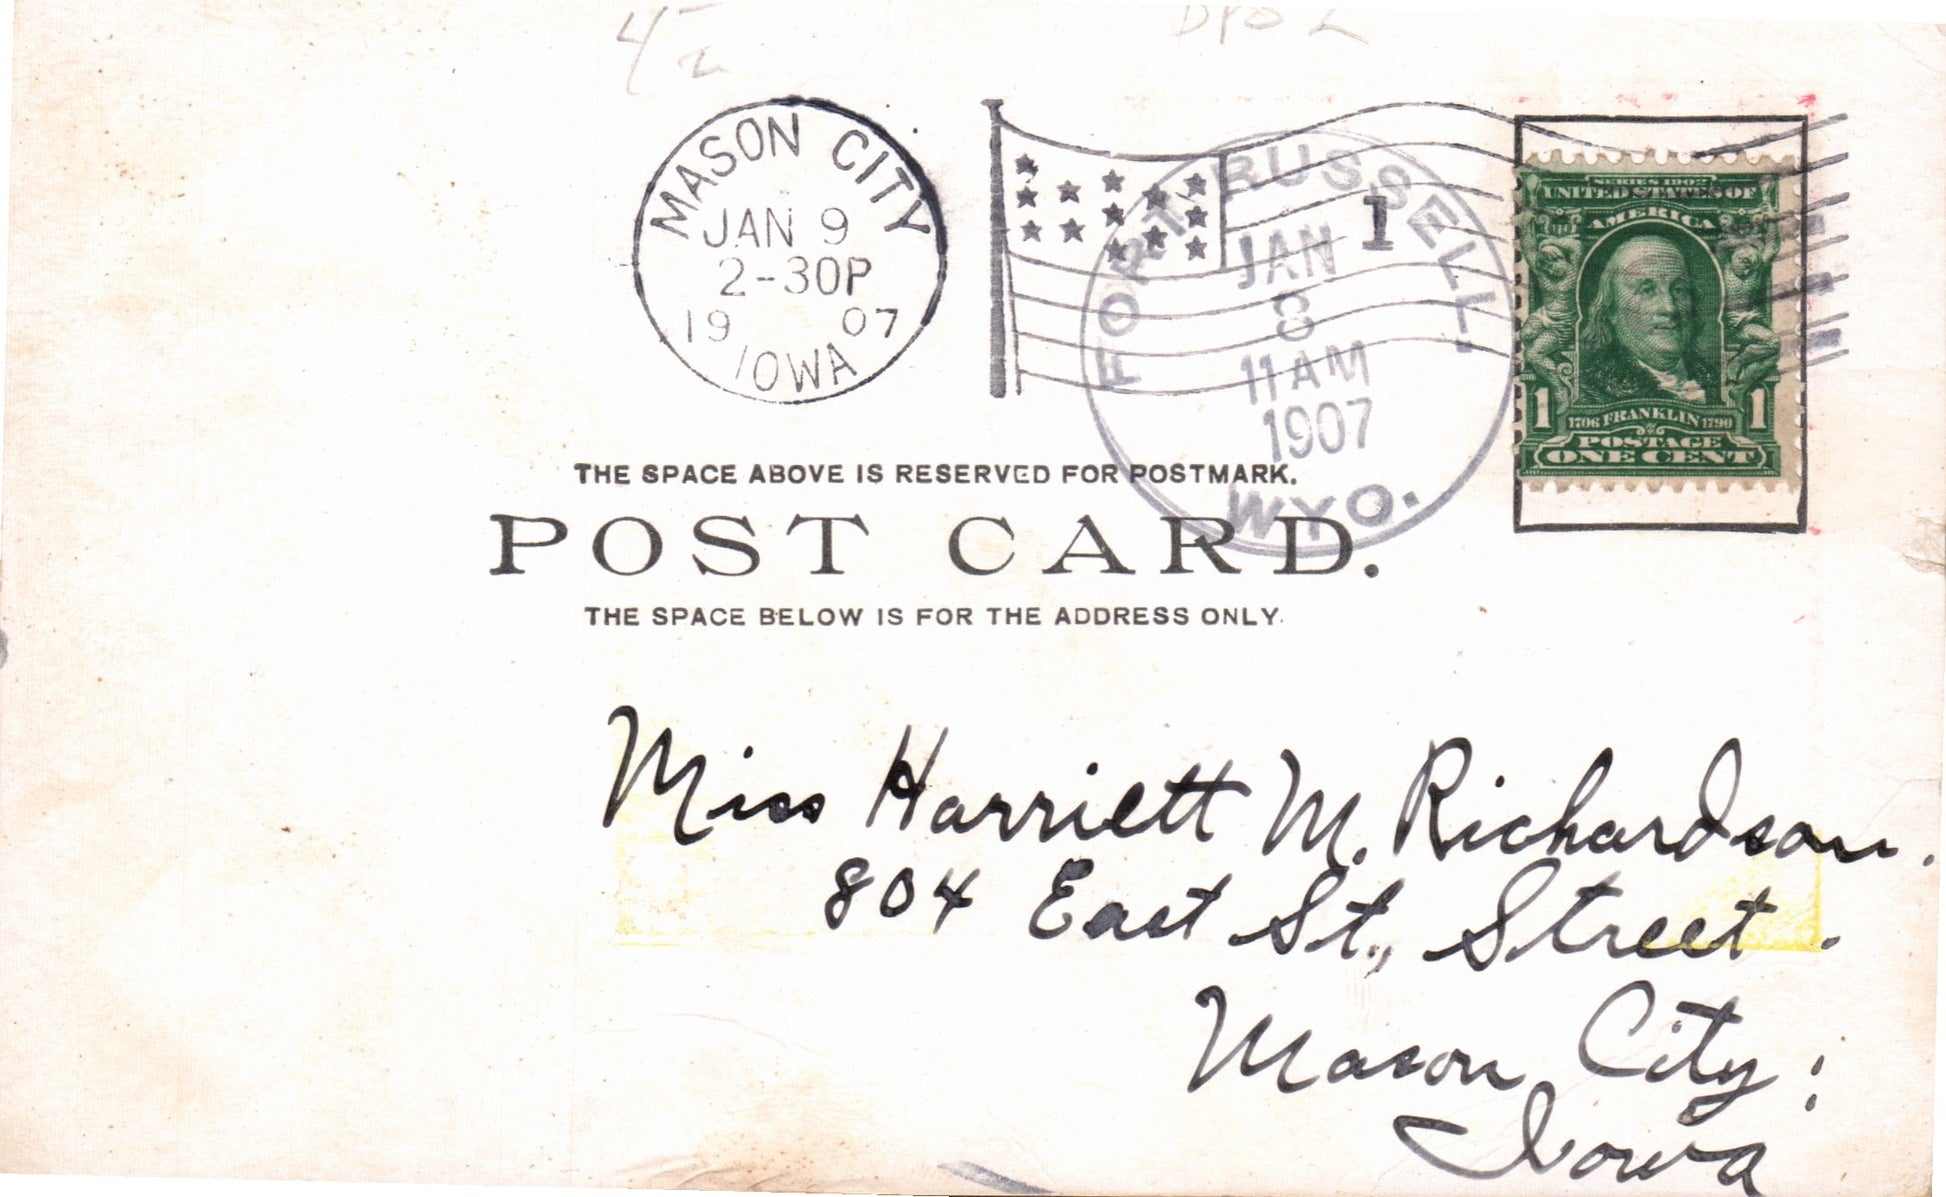 4/2
MASON CITY
JAN 9
2-30P
19 07
IOWA
1
FORT RUSSELL,
JAN
8
11 AM
1907
WYO.
SERIES 1902
UNITED STATES OF
AMERICA
1 1706 FRANKLIN 1790 1
POSTAGE
ONE CENT
THE SPACE ABOVE IS RESERVED FOR POSTMARK.
POST CARD.
THE SPACE BELOW IS FOR THE ADDRESS ONLY.
Miss Harriett M. Richardson.
804 East St., Street.
Mason City;
Iowa